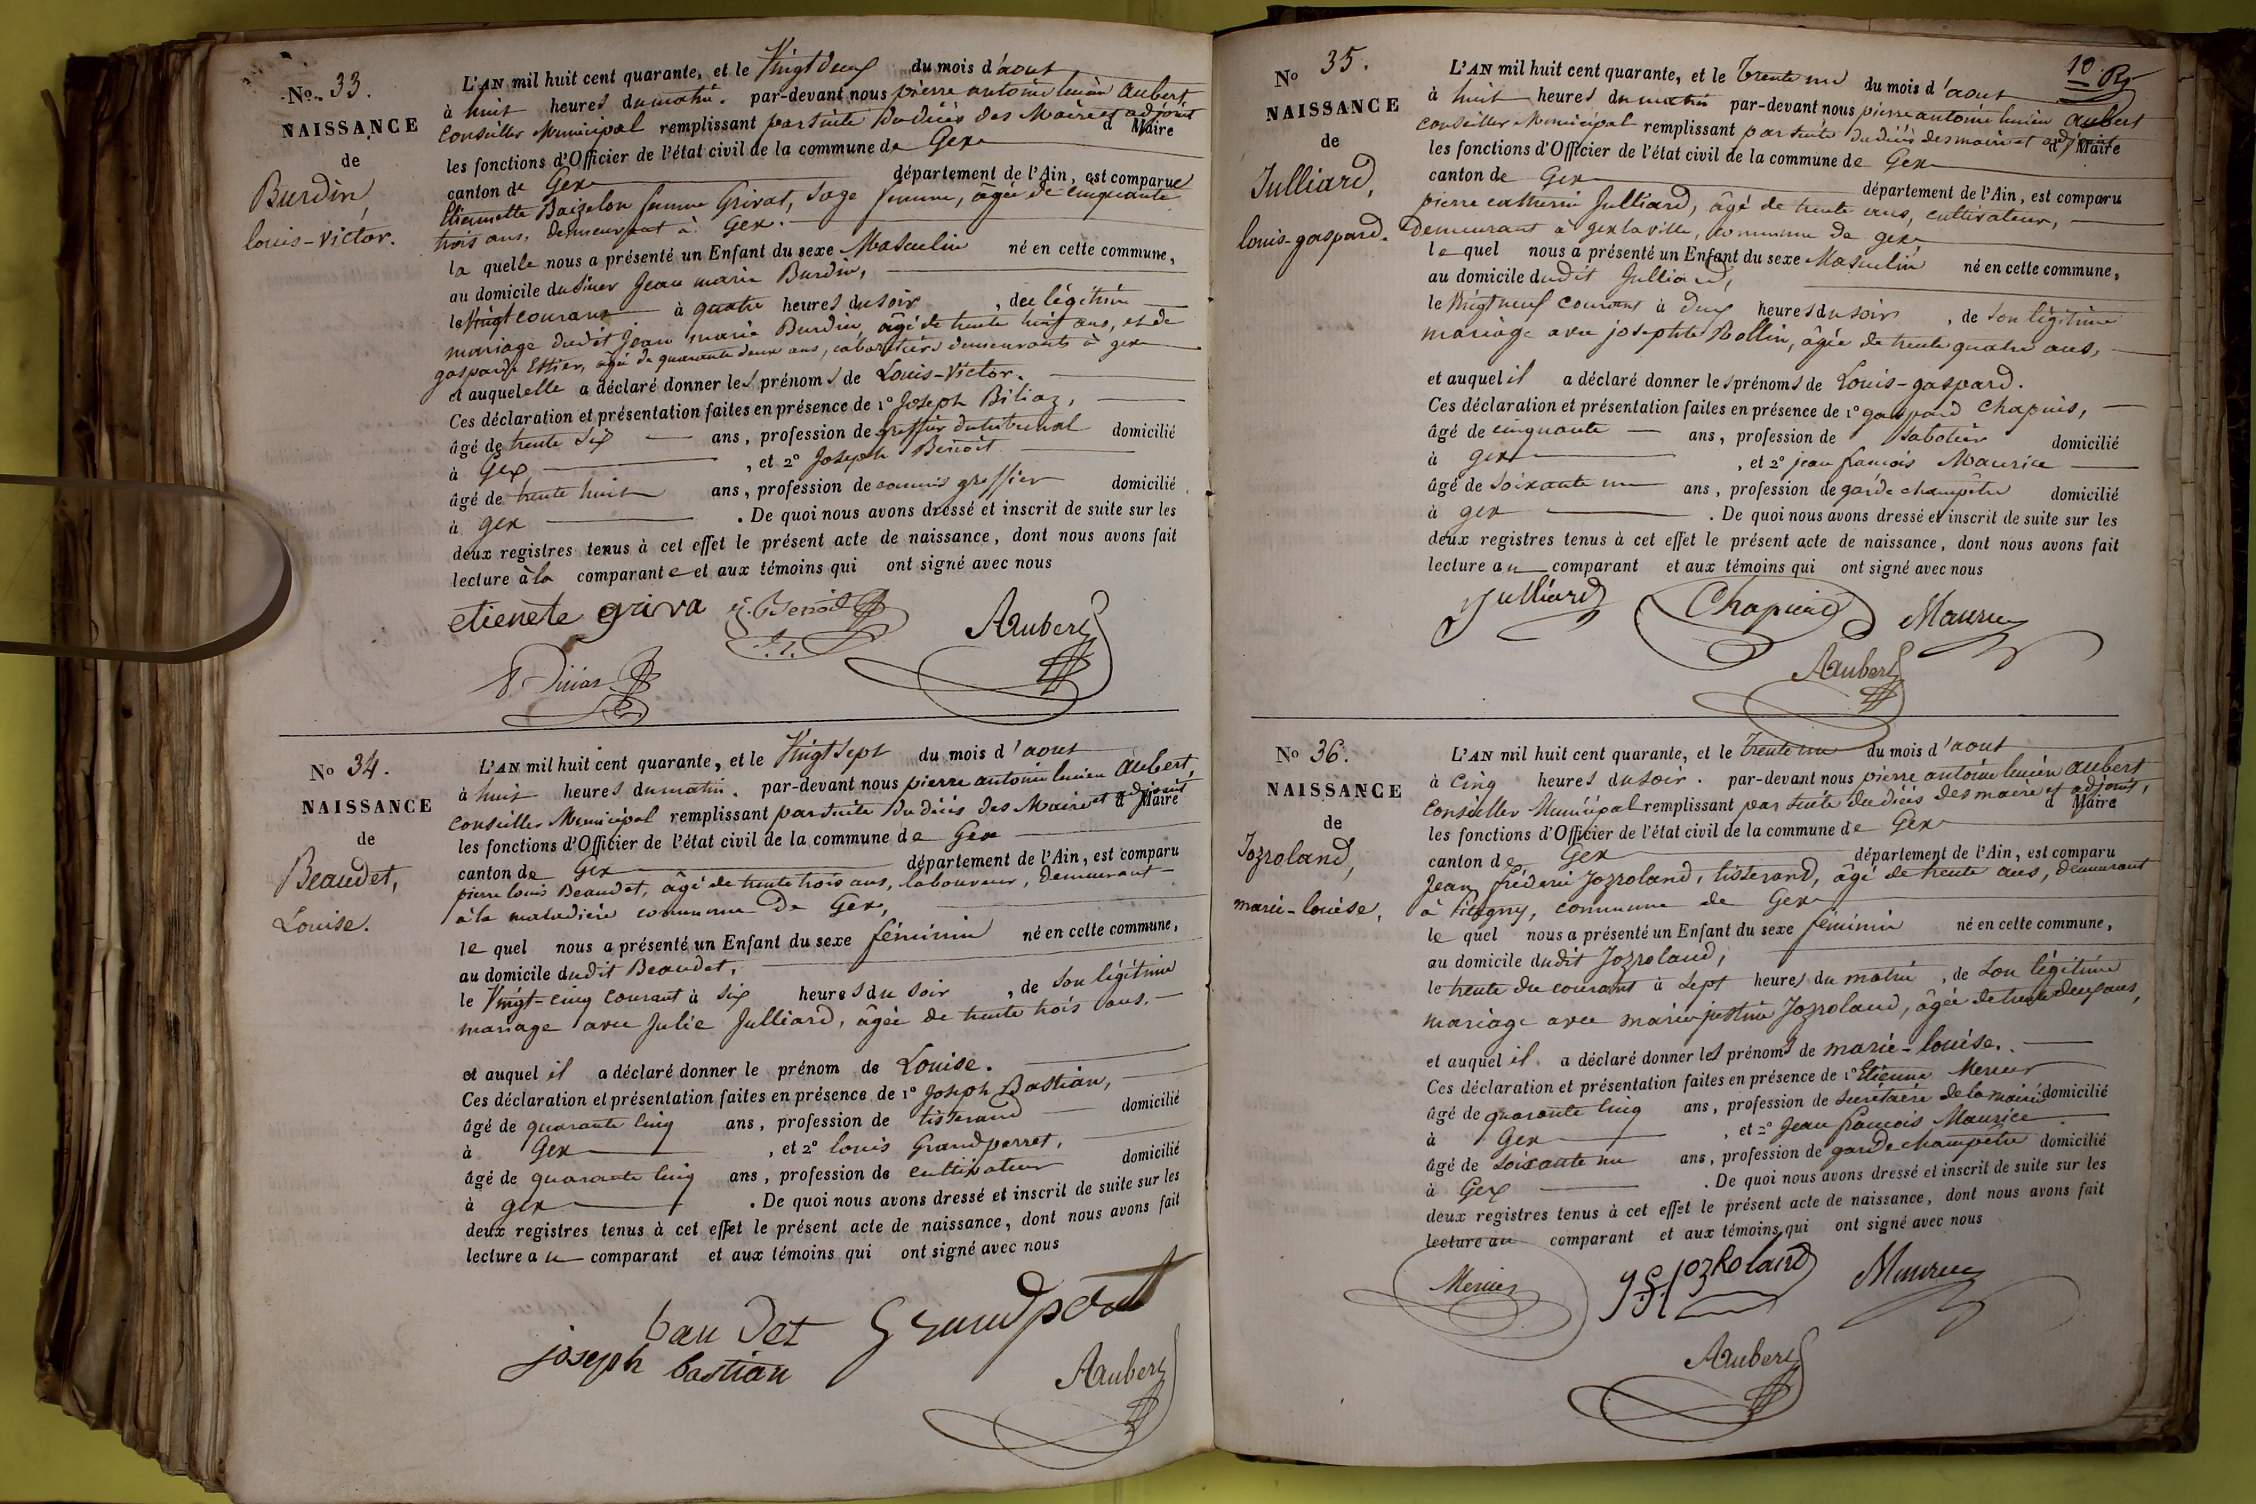 No 33.
NAISSANCE
de
Burdin,
louis-victor.
L'AN mil huit cent quarante, et le Vingt deux du mois d'aout
à huit heures du matin. par-devant nous pierre antoine lucien Aubert
Conseiller Municipal remplissant par suite du décès des Maire et adjoint d Maire
les fonctions d'Officier de l'état civil de la commune de Gex
canton de Gex département de l'Ain, est comparue
Etiennette Baizelon femme Grivat, Sage femme, âgée de cinquante
trois ans, demeurant à Gex.
la quelle nous a présenté un Enfant du sexe Masculin né en cette commune,
au domicile du Sieur Jean marie Burdin,
le Vingt courant à quatre heures du soir, de légitime
mariage dudit Jean marie Burdin, âgé de trente huit ans, et de
gasparde Ettier, âgée de quarante deux ans, cabaretiers demeurants à gex
et auquel elle a déclaré donner les prénoms de Louis-Victor.
Ces déclaration et présentation faites en présence de 1° Joseph Biliaz,
âgé de trente six ans, profession de greffier du tribunal domicilié
à Gex, et 2° Joseph Benoit
âgé de trente huit ans, profession de commis greffier domicilié
à gex. De quoi nous avons dressé et inscrit de suite sur les
deux registres tenus à cet effet le présent acte de naissance, dont nous avons fait
lecture à la comparante et aux témoins qui ont signé avec nous
etienete griva J. Benoit Aubert
No 34.
NAISSANCE
de
Beaudet,
Louise.
L'AN mil huit cent quarante, et le Vingt sept du mois d'aout
à huit heures du matin. par-devant nous pierre antoine lucien Aubert,
Conseiller Municipal remplissant par suite du décès des Maire et adjoint d Maire
les fonctions d'Officier de l'état civil de la commune de Gex
canton de Gex département de l'Ain, est comparu
pierre louis Beaudet, âgé de trente trois ans, laboureur, demeurant
à la maladière commune de Gex,
le quel nous a présenté un Enfant du sexe féminin né en cette commune,
au domicile dudit Beaudet,
le Vingt-cinq courant à six heures du soir, de son légitime
mariage avec Julie Julliard, âgée de trente trois ans.
et auquel il a déclaré donner le prénom de Louise.
Ces déclaration et présentation faites en présence de 1° Joseph Bastian,
âgé de quarante cinq ans, profession de tisserand domicilié
à Gex, et 2° louis Grandperret,
âgé de quarante cinq ans, profession de cultivateur domicilié
à gex. De quoi nous avons dressé et inscrit de suite sur les
deux registres tenus à cet effet le présent acte de naissance, dont nous avons fait
lecture au comparant et aux témoins qui ont signé avec nous
baudet
joseph bastian
Aubert
10
No 35.
NAISSANCE
de
Julliard,
louis-gaspard.
L'AN mil huit cent quarante, et le Trente un du mois d'aout
à huit heures du matin par-devant nous pierre antoine lucien Aubert
Conseiller Municipal remplissant par suite du décès des maire et adjoint d Maire
les fonctions d'Officier de l'état civil de la commune de Gex
canton de Gex département de l'Ain, est comparu
pierre catherin Julliard, âgé de trente ans, cultivateur,
Demeurant à gex la ville, commune de gex,
le quel nous a présenté un Enfant du sexe Masculin né en cette commune,
au domicile dudit Julliard,
le Vingt neuf courant à deux heures du soir, de son légitime
mariage avec josephte Rollin, âgée de trente quatre ans,
et auquel il a déclaré donner les prénoms de Louis-gaspard.
Ces déclaration et présentation faites en présence de 1° gaspard Chapuis,
âgé de cinquante ans, profession de sabotier domicilié
à gex, et 2° jean françois Maurice
âgé de soixante un ans, profession de garde champêtre domicilié
à gex. De quoi nous avons dressé et inscrit de suite sur les
deux registres tenus à cet effet le présent acte de naissance, dont nous avons fait
lecture au comparant et aux témoins qui ont signé avec nous
Julliard Chapuis Maurice
Aubert
No 36.
NAISSANCE
de
Jozroland,
marie-louise.
L'AN mil huit cent quarante, et le Trente un du mois d'aout
à Cinq heures du soir. par-devant nous pierre antoine lucien Aubert
Conseiller Municipal remplissant par suite du décès des maire et adjoint, d Maire
les fonctions d'Officier de l'état civil de la commune de Gex
canton de Gex département de l'Ain, est comparu
Jean fréderic Jozroland, tisserand, âgé de trente ans, demeurant
à pitegny, commune de Gex
le quel nous a présenté un Enfant du sexe féminin né en cette commune,
au domicile dudit Jozroland,
le trente du courant à sept heures du matin, de son légitime
mariage avec marie justine Jozroland, âgée de trente deux ans,
et auquel il a déclaré donner les prénoms de marie-louise.
Ces déclaration et présentation faites en présence de 1° Etienne Mercier
âgé de quarante cinq ans, profession de secrétaire de la mairie domicilié
à Gex, et 2° Jean françois Maurice
âgé de soixante un ans, profession de garde champêtre domicilié
à Gex. De quoi nous avons dressé et inscrit de suite sur les
deux registres tenus à cet effet le présent acte de naissance, dont nous avons fait
lecture au comparant et aux témoins qui ont signé avec nous
Mercier Jozroland Maurice
Aubert